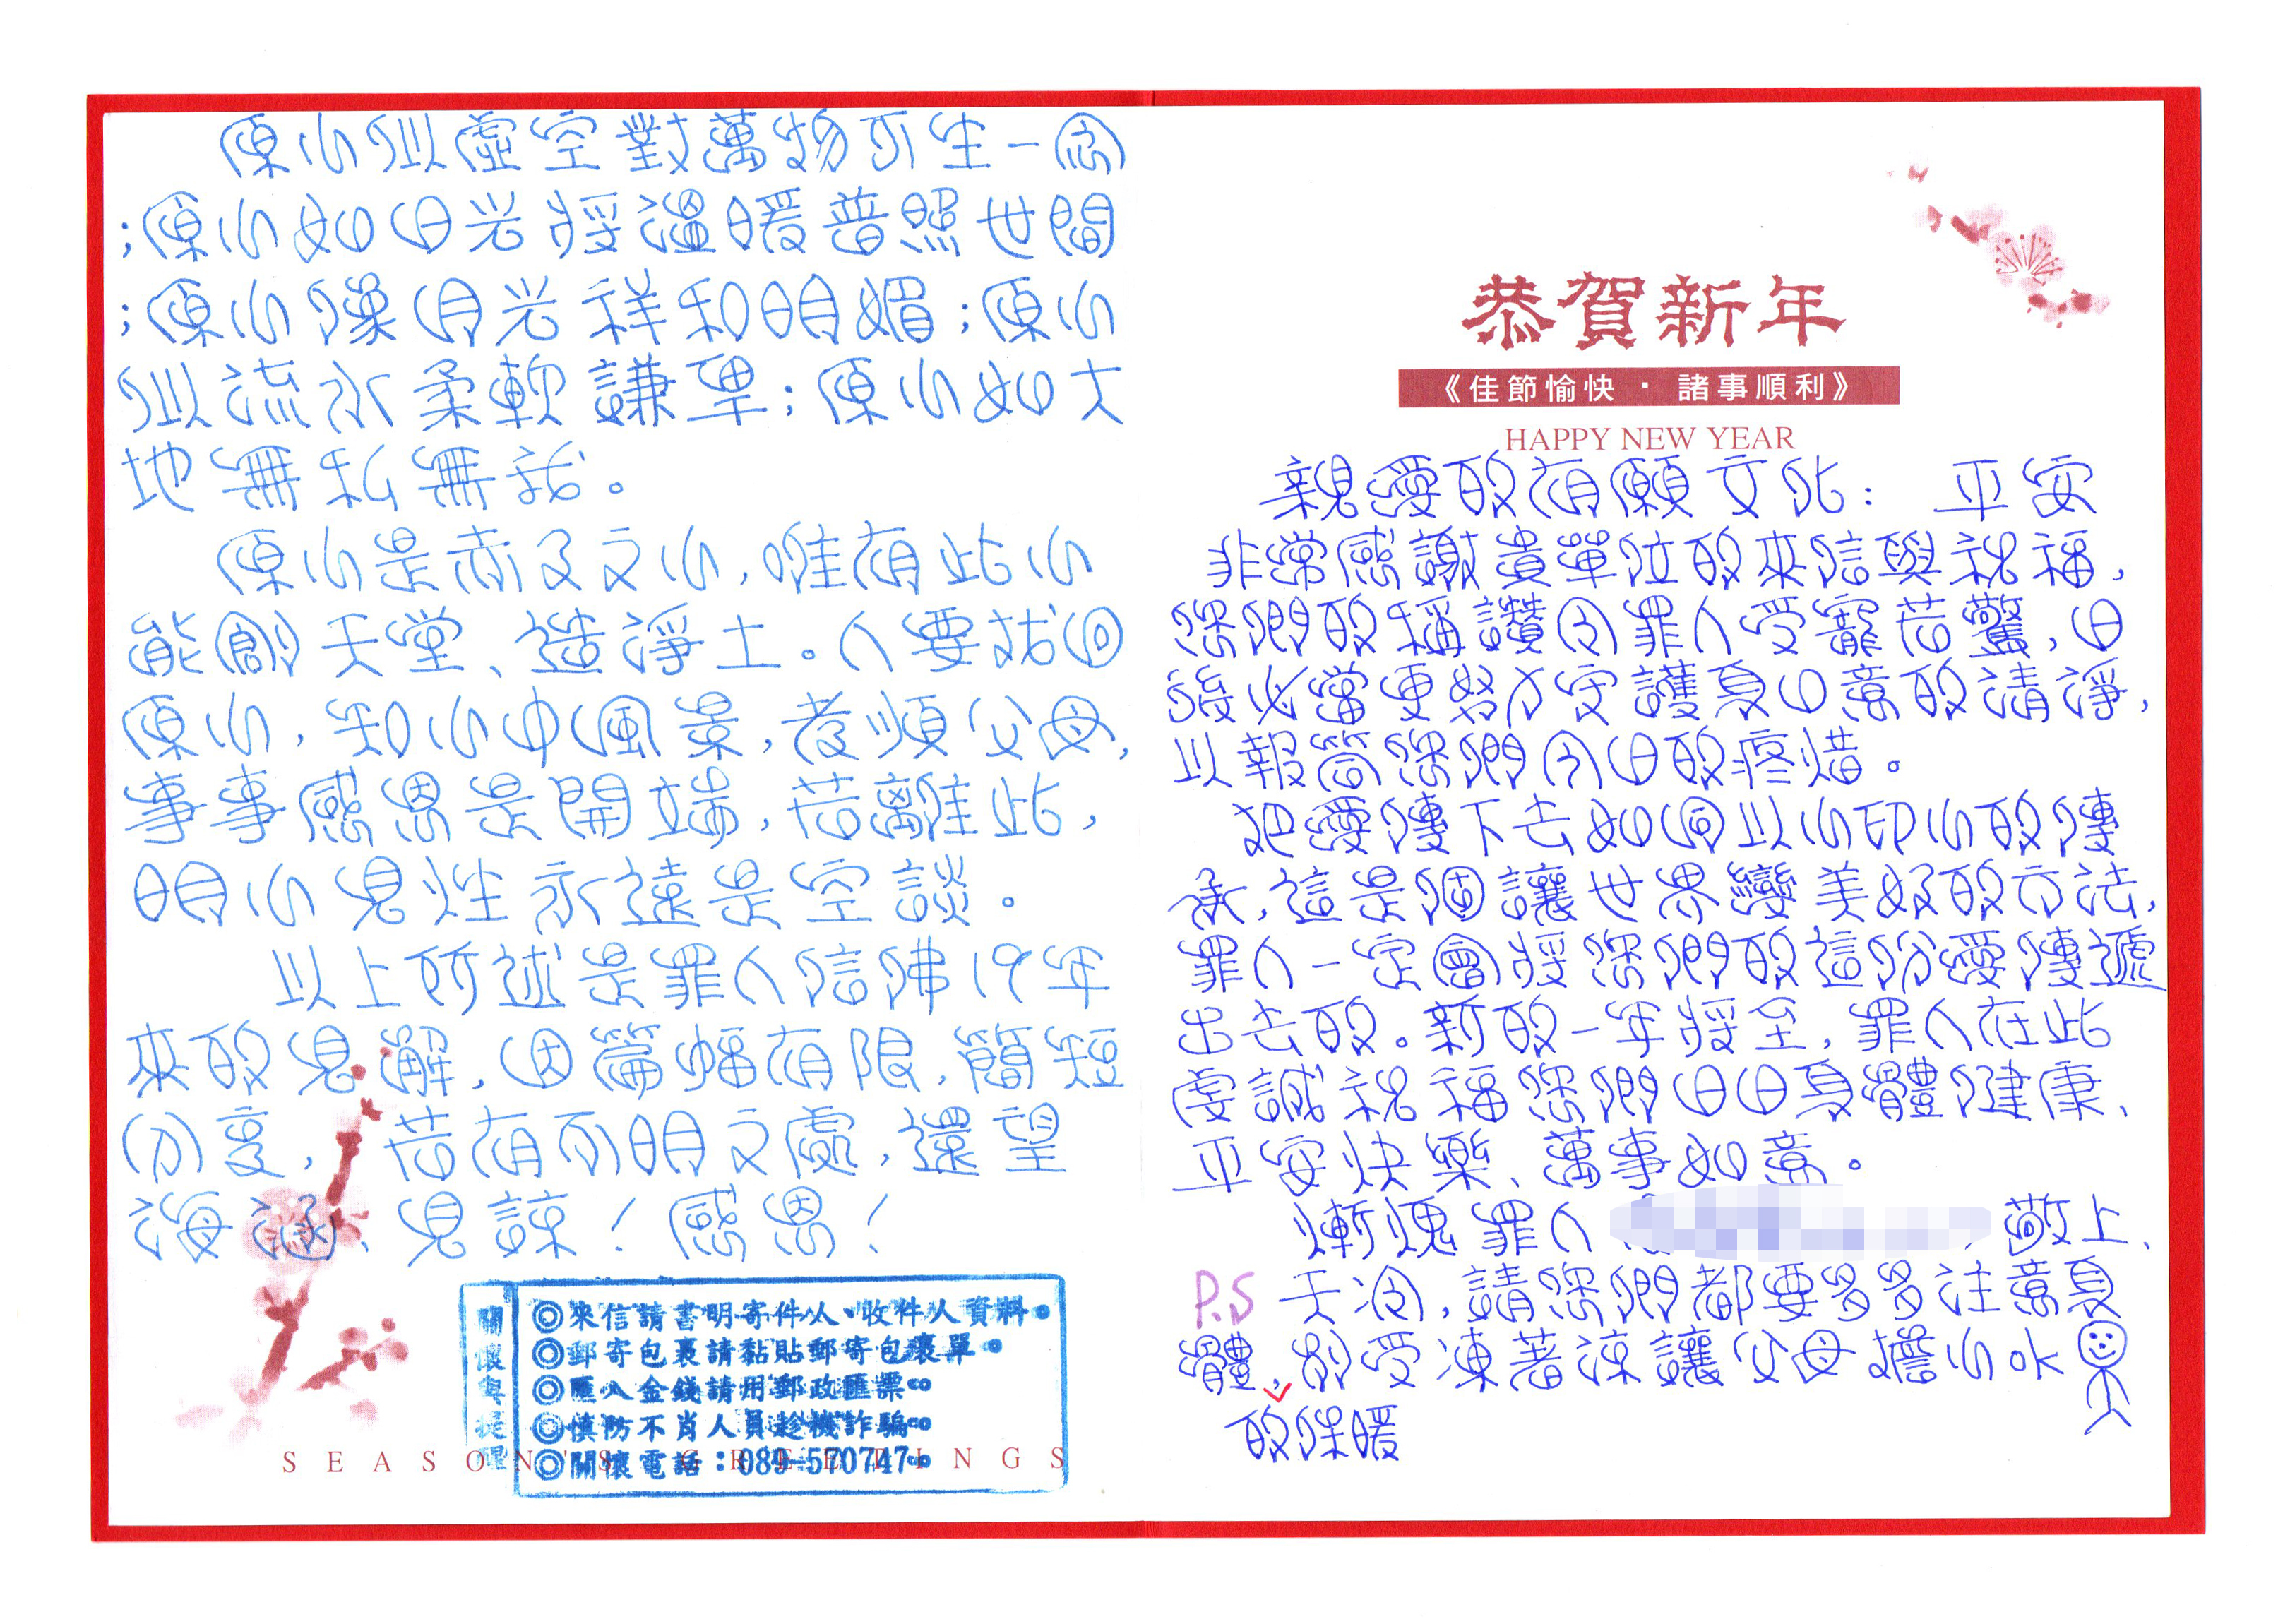 原心似虛空對萬物不生一念
;原心如日光將溫暖普照世間
;原心像月光祥和明媚;原心
似流水柔軟謙卑;原心如大
地無私無我。
原心是赤子之心,唯有此心
能創天堂、造淨土。人要找回
原心,知心中風景,孝順父母,
事事感恩是開端,若離此,
明心見性永遠是空談。
以上所述是罪人信佛19年
來的見解,因篇幅有限,簡短
分享,若有不明之處,還望
海涵、見諒!感恩!
關懷與提醒
◎來信請書明寄件人、收件人資料。
◎郵寄包裹請黏貼郵寄包裹單。
◎匯入金錢請用郵政匯票。
◎慎防不肖人員趁機詐騙。
◎關懷電話:089-570747。
SEASON'S GREETINGS
恭賀新年
《佳節愉快・諸事順利》
HAPPY NEW YEAR
親愛的有願文化: 平安
非常感謝貴單位的來信與祝福,
您們的稱讚令罪人受寵若驚,日
後必當更努力守護身口意的清淨,
以報答您們今日的疼惜。
把愛傳下去如同以心印心的傳
承,這是個讓世界變美好的方法,
罪人一定會將您們的這份愛傳遞
出去的。新的一年將至,罪人在此
虔誠祝福您們日日身體健康、
平安快樂、萬事如意。
慚愧罪人 敬上、
P.S 天冷,請您們都要多多注意身
體,別受凍著涼讓父母擔心ok
的保暖